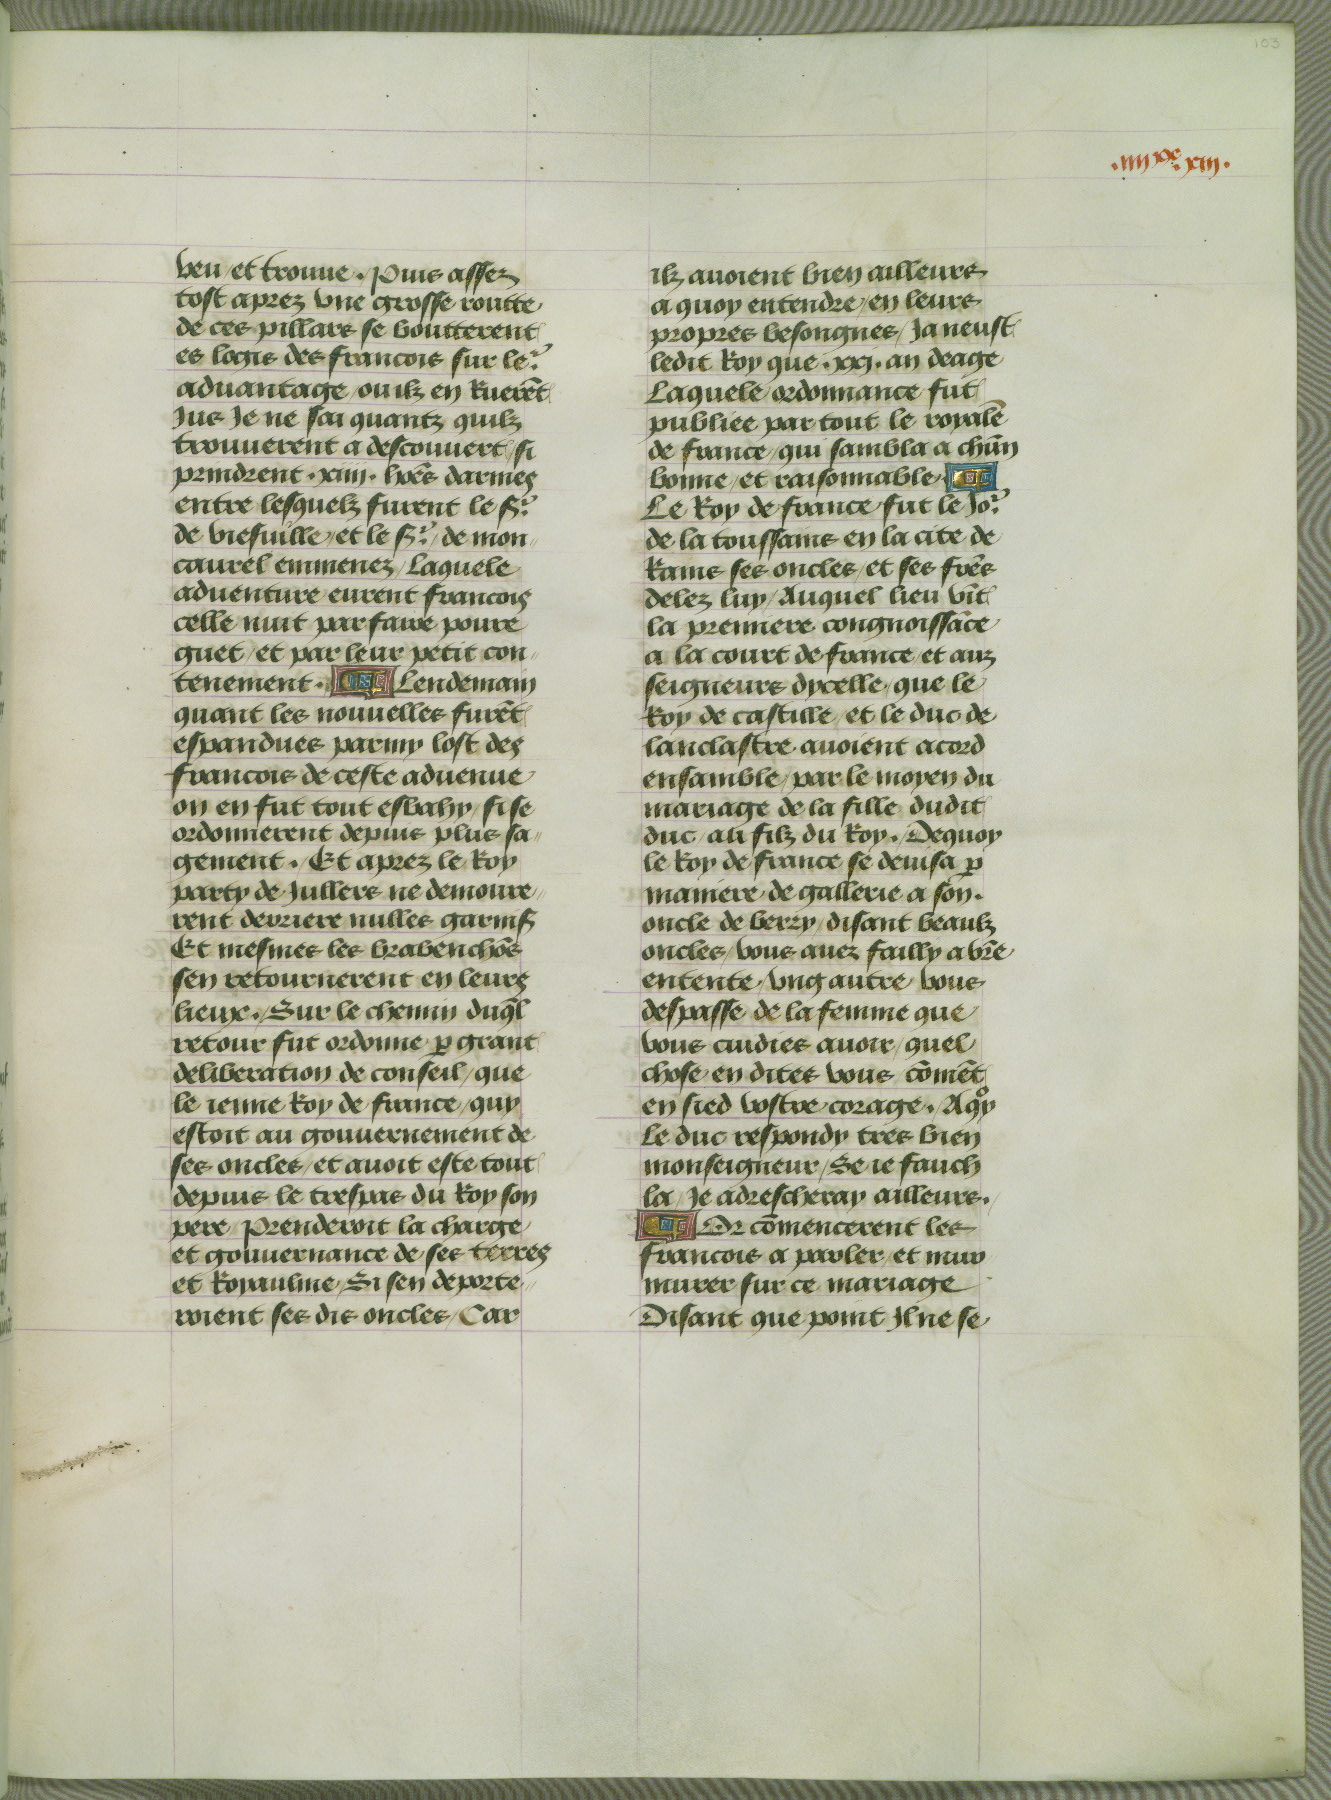 103
.iiii xx. xiii.
veu / et trouue . Puis assez
tost aprez vne grosse routte
de ces pillars se bouterent
es logis des francois sur leʳ
aduantage / ou ilz en Ruerēt
Jus Je ne sai quantz quilz
trouuerent a descouuert / si
prindrent .xiiii. hōēs darmes
entre lesquelz furent le sʳ
de viesuille / et le sʳ / de mon〃
caurel emmenez / Laquele
aduenture eurent francois
celle nuit par faire poure
guet / et par leur petit con〃
tenement . Lendemain
quant les nouuelles furēt
espandues parmy lost des
francois de ceste aduenue
on en fut tout esbahy / si se
ordonnerent depuis plus sa〃
gement . Et aprez le Roy
party de Jullers ne demoure〃
rent derriere nulles garnis
Et mesmes les brabenchōs
sen retournerent en leurs
lieux . Sur le chemin duql̄
retour fut ordonne ꝑ grant
deliberation de conseil / que
le ieune Roy de france / quy
estoit au gouuernement de
ses oncles / et auoit este tout
depuis le trespas du Roy son
pere / Prenderoit la charge
et gouuernance de ses terres
et Royaulme / Si sen deporte〃
roient ses dis oncles / Car
ilz auoient bien ailleurs
a quoy entendre / en leurs
propres besongnes / Ja neust
ledit Roy que .xxi. an deage
Laquele ordonnance fut
publiee par tout le royalē
de france / qui sambla a chūn
bonne / et raisonnable .
Le Roy de france fut le Joʳ
de la toussains en la cite de
Rains ses oncles / et ses frēs
delez luy / Auquel lieu vīt
la premiere congnoissāce
a la court de france et aux
seigneurs dycelle / que le
Roy de castille / et le duc de
lanclastre auoient acord
ensamble / par le moyen du
mariage de la fille dudit
duc / au filz du Roy . Dequoy
le Roy de france se deuisa ꝑ
maniere de gallerie a son .
oncle de berry / disant beaulz
oncles / vous auez failly a vrē
entente / vng autre vous
despasse de la femme que
vous cuidies auoir / quel
chose en dites vous cōmēt
en sied vostre corage . A qͦy
Le duc respondy tres bien
monseigneur / Se ie fauch
la / Je adrescheray ailleurs .
Or cōmencerent les
francois a parler / et mur
murer sur ce mariage
Disant que point Il ne se